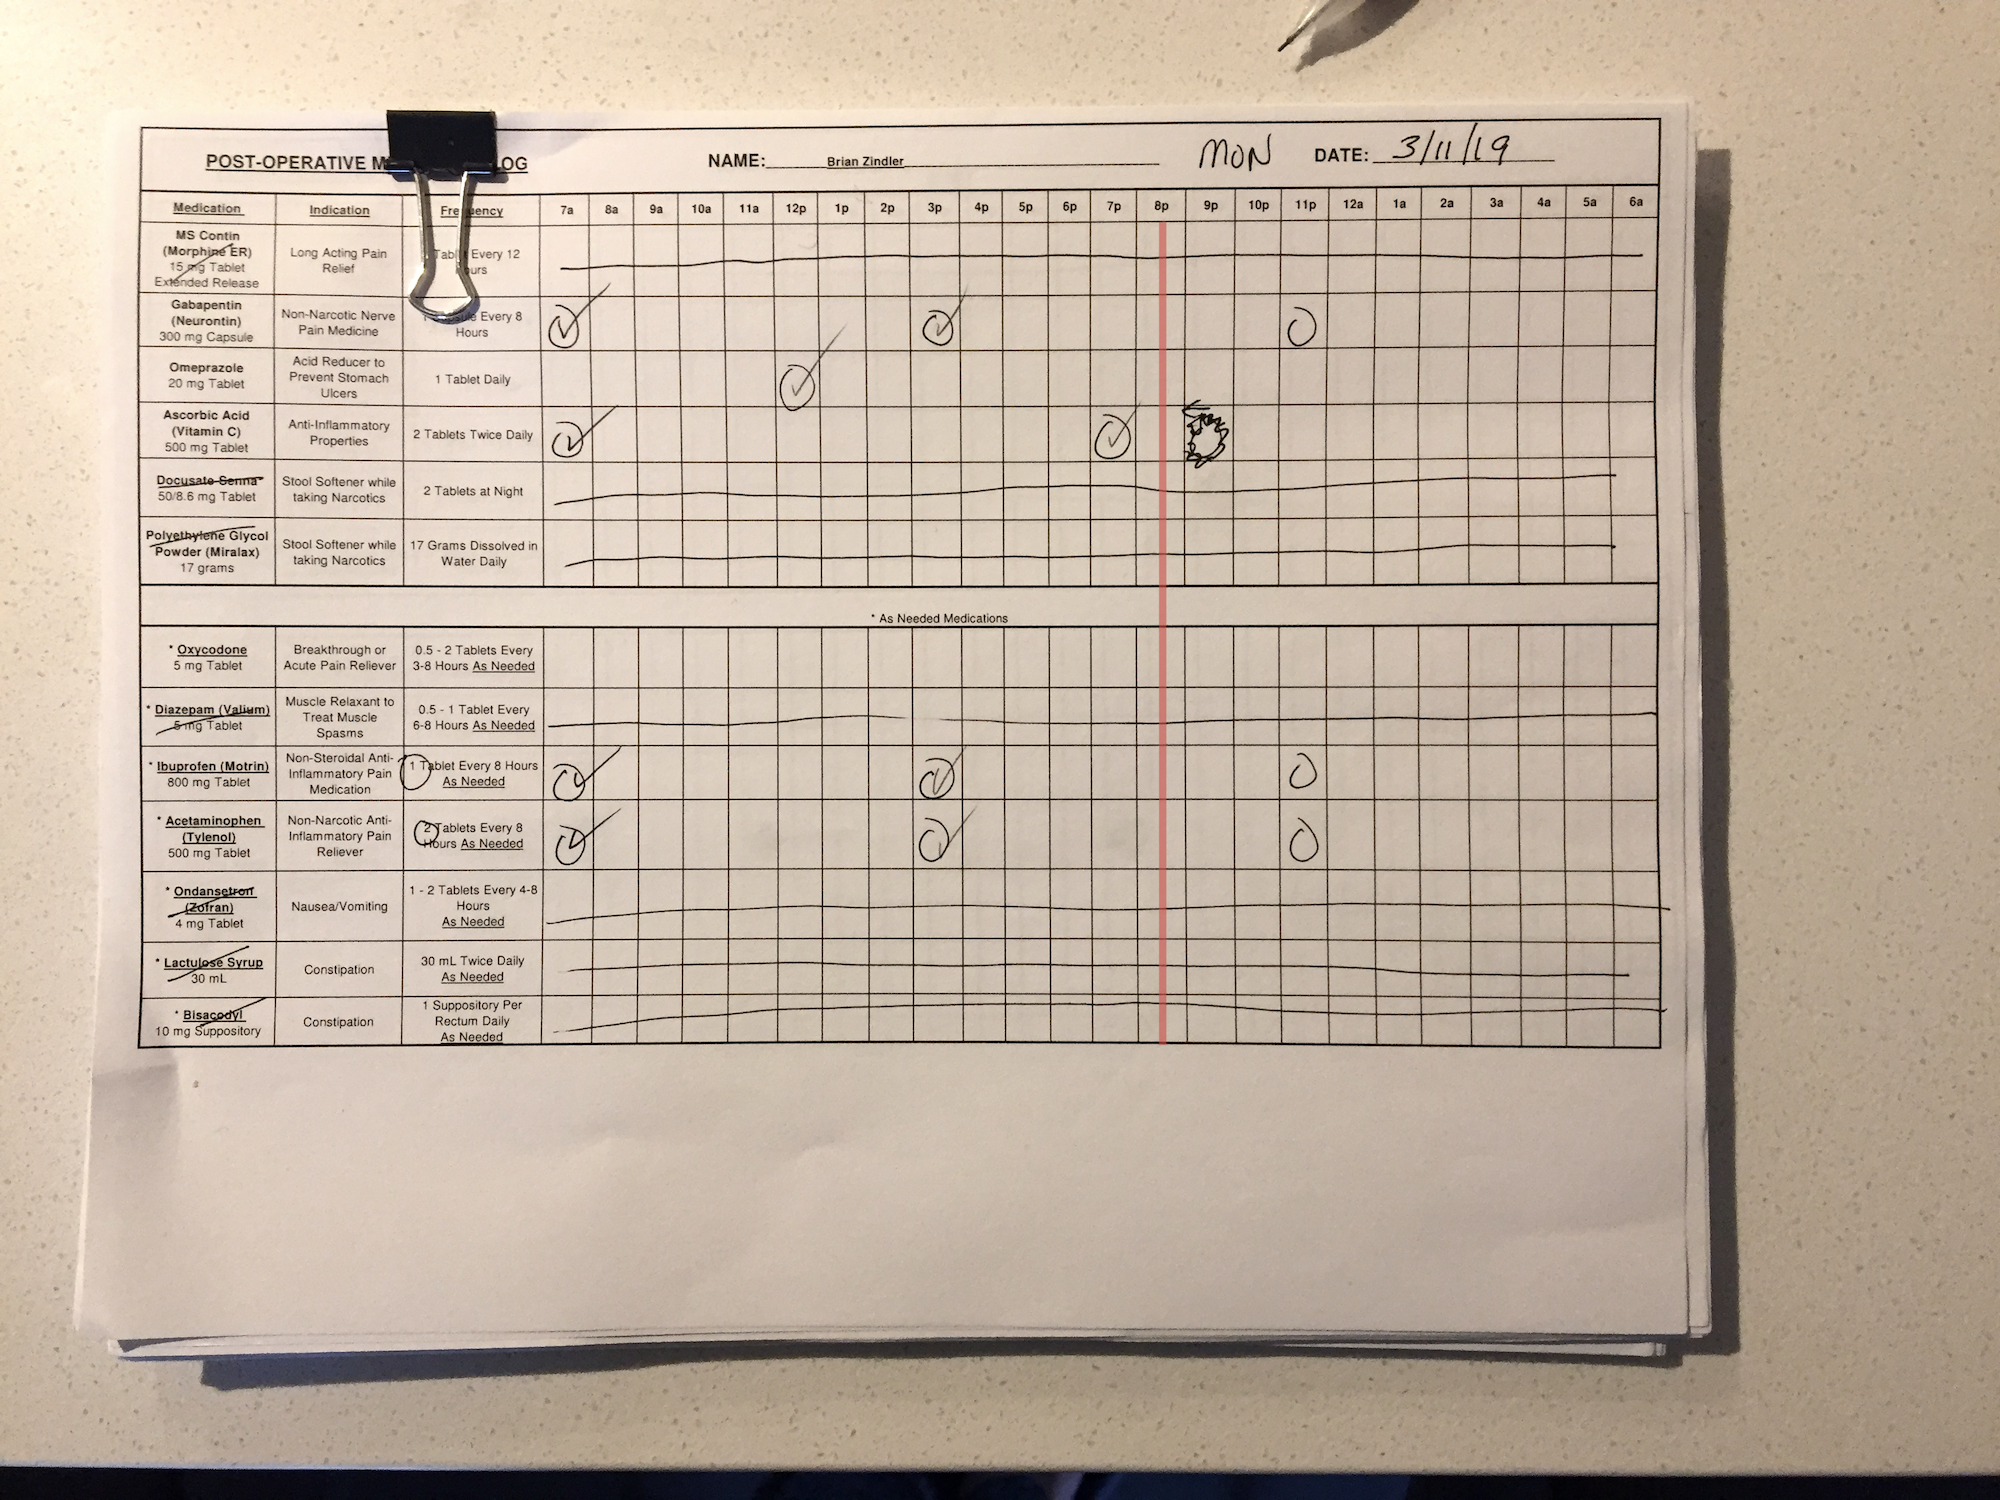 POST-OPERATIVE LOG NAME: Brian Zindler MON DATE: 3/11/19
Medication Indication Frequency 7a 8a 9a 10a 11a 12p 1p 2p 3p 4p 5p 6p 7p 8p 9p 10p 11p 12a 1a 2a 3a 4a 5a 6a
MS Contin
(Morphine ER)
15 mg Tablet
Extended Release
Long Acting Pain
Relief
Every 12
Gabapentin
(Neurontin)
300 mg Capsule
Non-Narcotic Nerve
Pain Medicine
Every 8
Hours
Omeprazole
20 mg Tablet
Acid Reducer to
Prevent Stomach
Ulcers
1 Tablet Daily
Ascorbic Acid
(Vitamin C)
500 mg Tablet
Anti-Inflammatory
Properties
2 Tablets Twice Daily
Docusate Senna
50/8.6 mg Tablet
Stool Softener while
taking Narcotics
2 Tablets at Night
Polyethylene Glycol
Powder (Miralax)
17 grams
Stool Softener while
taking Narcotics
17 Grams Dissolved in
Water Daily
* As Needed Medications
* Oxycodone
5 mg Tablet
Breakthrough or
Acute Pain Reliever
0.5 - 2 Tablets Every
3-8 Hours As Needed
* Diazepam (Valium)
5 mg Tablet
Muscle Relaxant to
Treat Muscle
Spasms
0.5 - 1 Tablet Every
6-8 Hours As Needed
* Ibuprofen (Motrin)
800 mg Tablet
Non-Steroidal Anti-
Inflammatory Pain
Medication
1 Tablet Every 8 Hours
As Needed
* Acetaminophen
(Tylenol)
500 mg Tablet
Non-Narcotic Anti-
Inflammatory Pain
Reliever
2 Tablets Every 8
Hours As Needed
* Ondansetron
(Zofran)
4 mg Tablet
Nausea/Vomiting
1 - 2 Tablets Every 4-8
Hours
As Needed
* Lactulose Syrup
30 mL
Constipation
30 mL Twice Daily
As Needed
* Bisacodyl
10 mg Suppository
Constipation
1 Suppository Per
Rectum Daily
As Needed